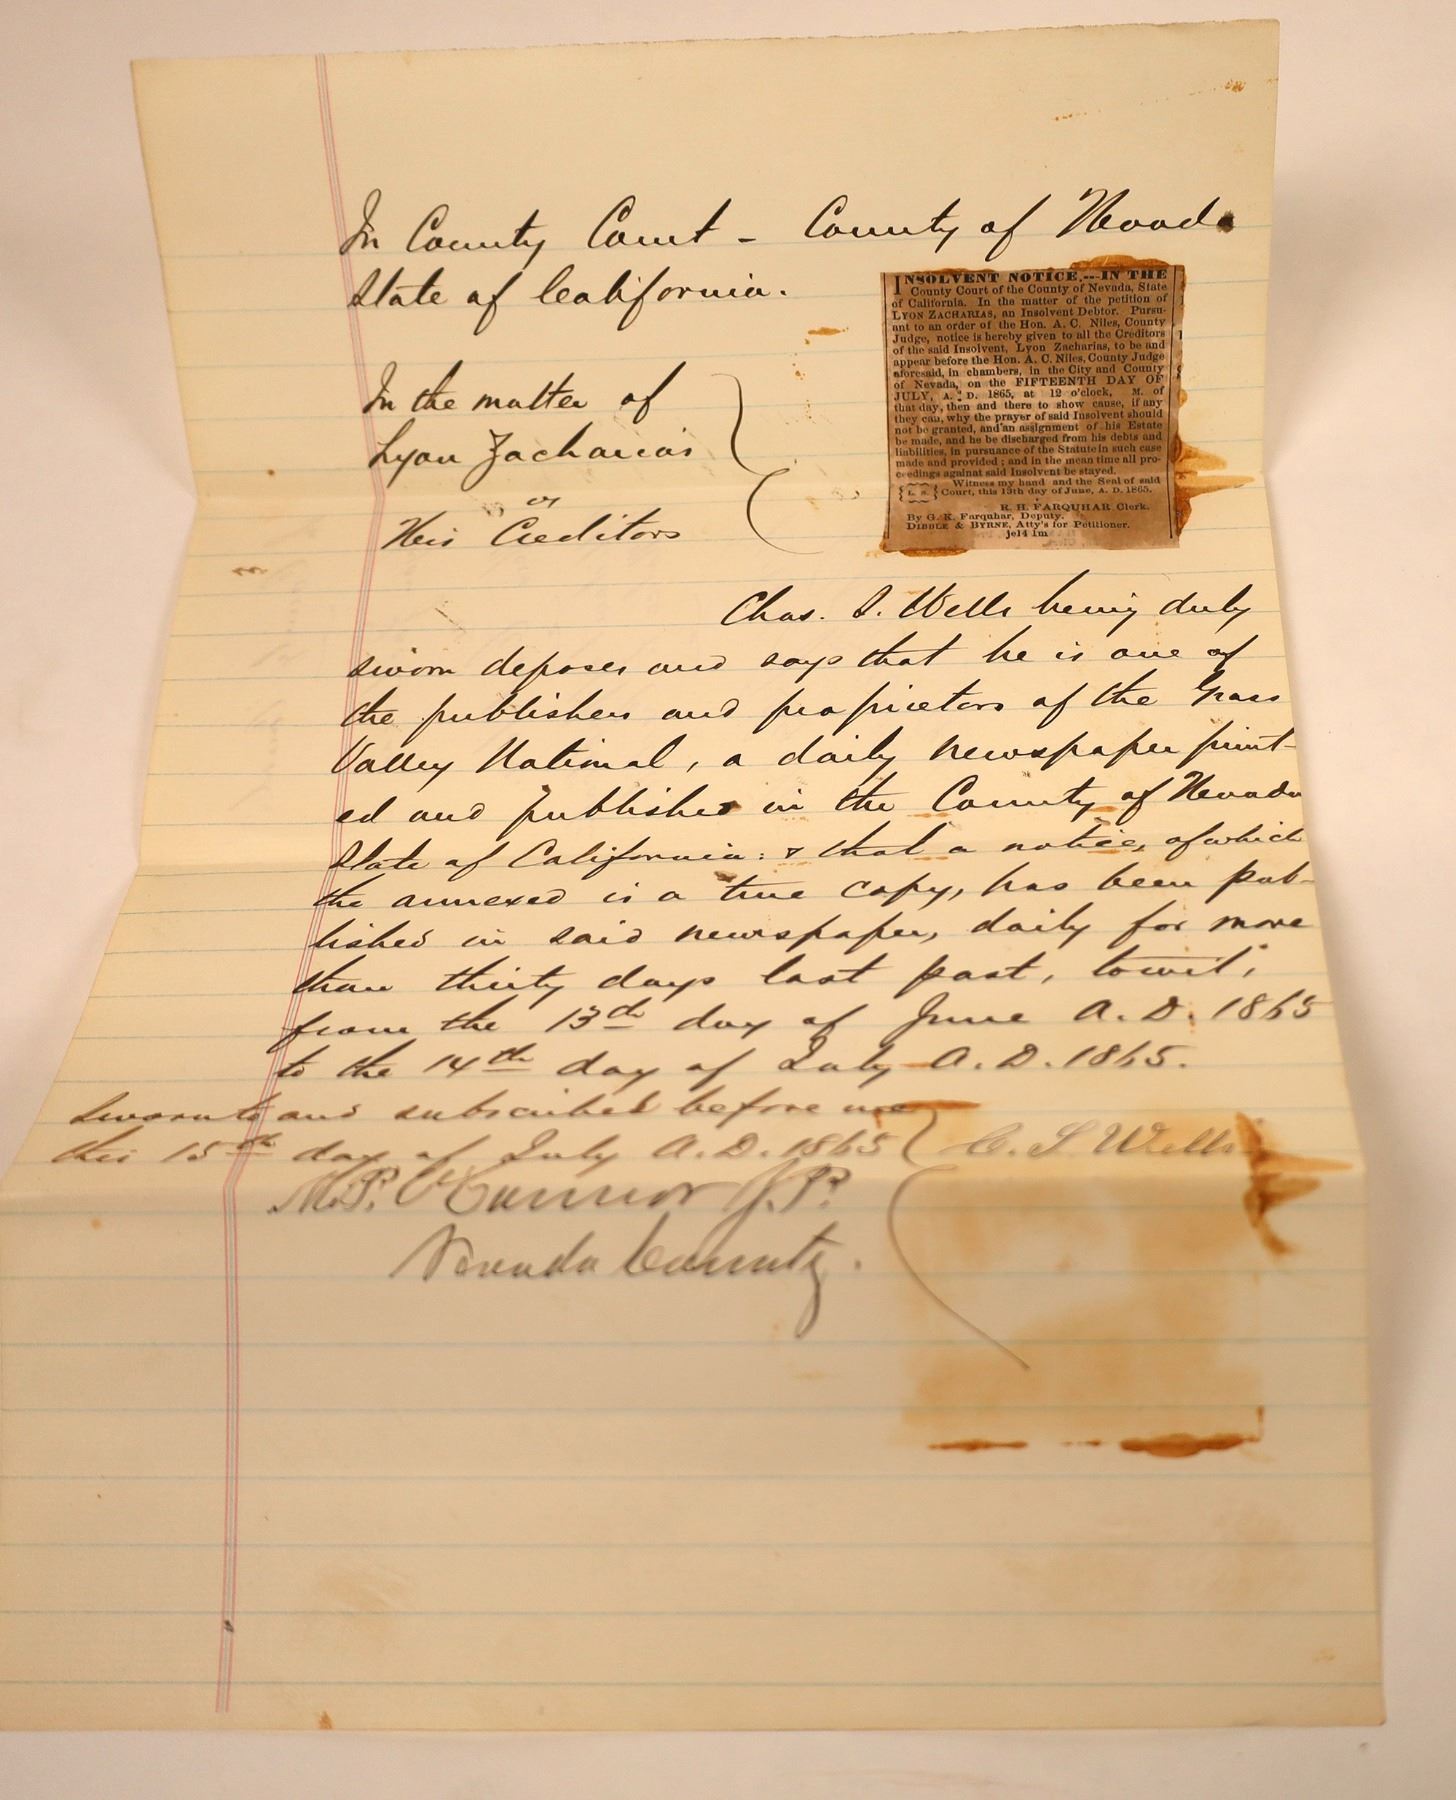 In County Court - County of Nevada
State of California.
INSOLVENT NOTICE.---IN THE
County Court of the County of Nevada, State
of California. In the matter of the petition of
LYON ZACHARIAS, an Insolvent Debtor. Pursu-
ant to an order of the Hon. A. C. Niles, County
Judge, notice is hereby given to all the Creditors
of the said Insolvent, Lyon Zacharias, to be and
appear before the Hon. A. C. Niles, County Judge
aforesaid, in chambers, in the City and County
of Nevada, on the FIFTEENTH DAY OF
JULY, A. D. 1865, at 12 o'clock, M. of
that day, then and there to show cause, if any
they can, why the prayer of said Insolvent should
not be granted, and an assignment of his Estate
be made, and he be discharged from his debts and
liabilities, in pursuance of the Statute in such case
made and provided; and in the mean time all pro-
ceedings against said Insolvent be stayed.
Witness my hand and the Seal of said
{L. S.} Court, this 13th day of June, A. D. 1865.
R. H. FARQUHAR Clerk.
By G. K. Farquhar, Deputy.
DIBBLE & BYRNE, Att'ys for Petitioner.
je14 1m
In the matter of
Lyon Zacharias
vs
His Creditors
Chas. S. Wells being duly
sworn deposes and says that he is one of
the publishers and proprietors of the Grass
Valley National, a daily newspaper print-
ed and published in the County of Nevada
State of California: & that a notice, of which
the annexed is a true copy, has been pub-
lished in said newspaper, daily for more
than thirty days last past, towit;
from the 13th day of June A.D. 1865
to the 14th day of July A.D. 1865.
Sworn to and subscribed before me
this 15th day of July A.D. 1865 C. S. Wells
M.P. O'Connor J.P.
Nevada County.